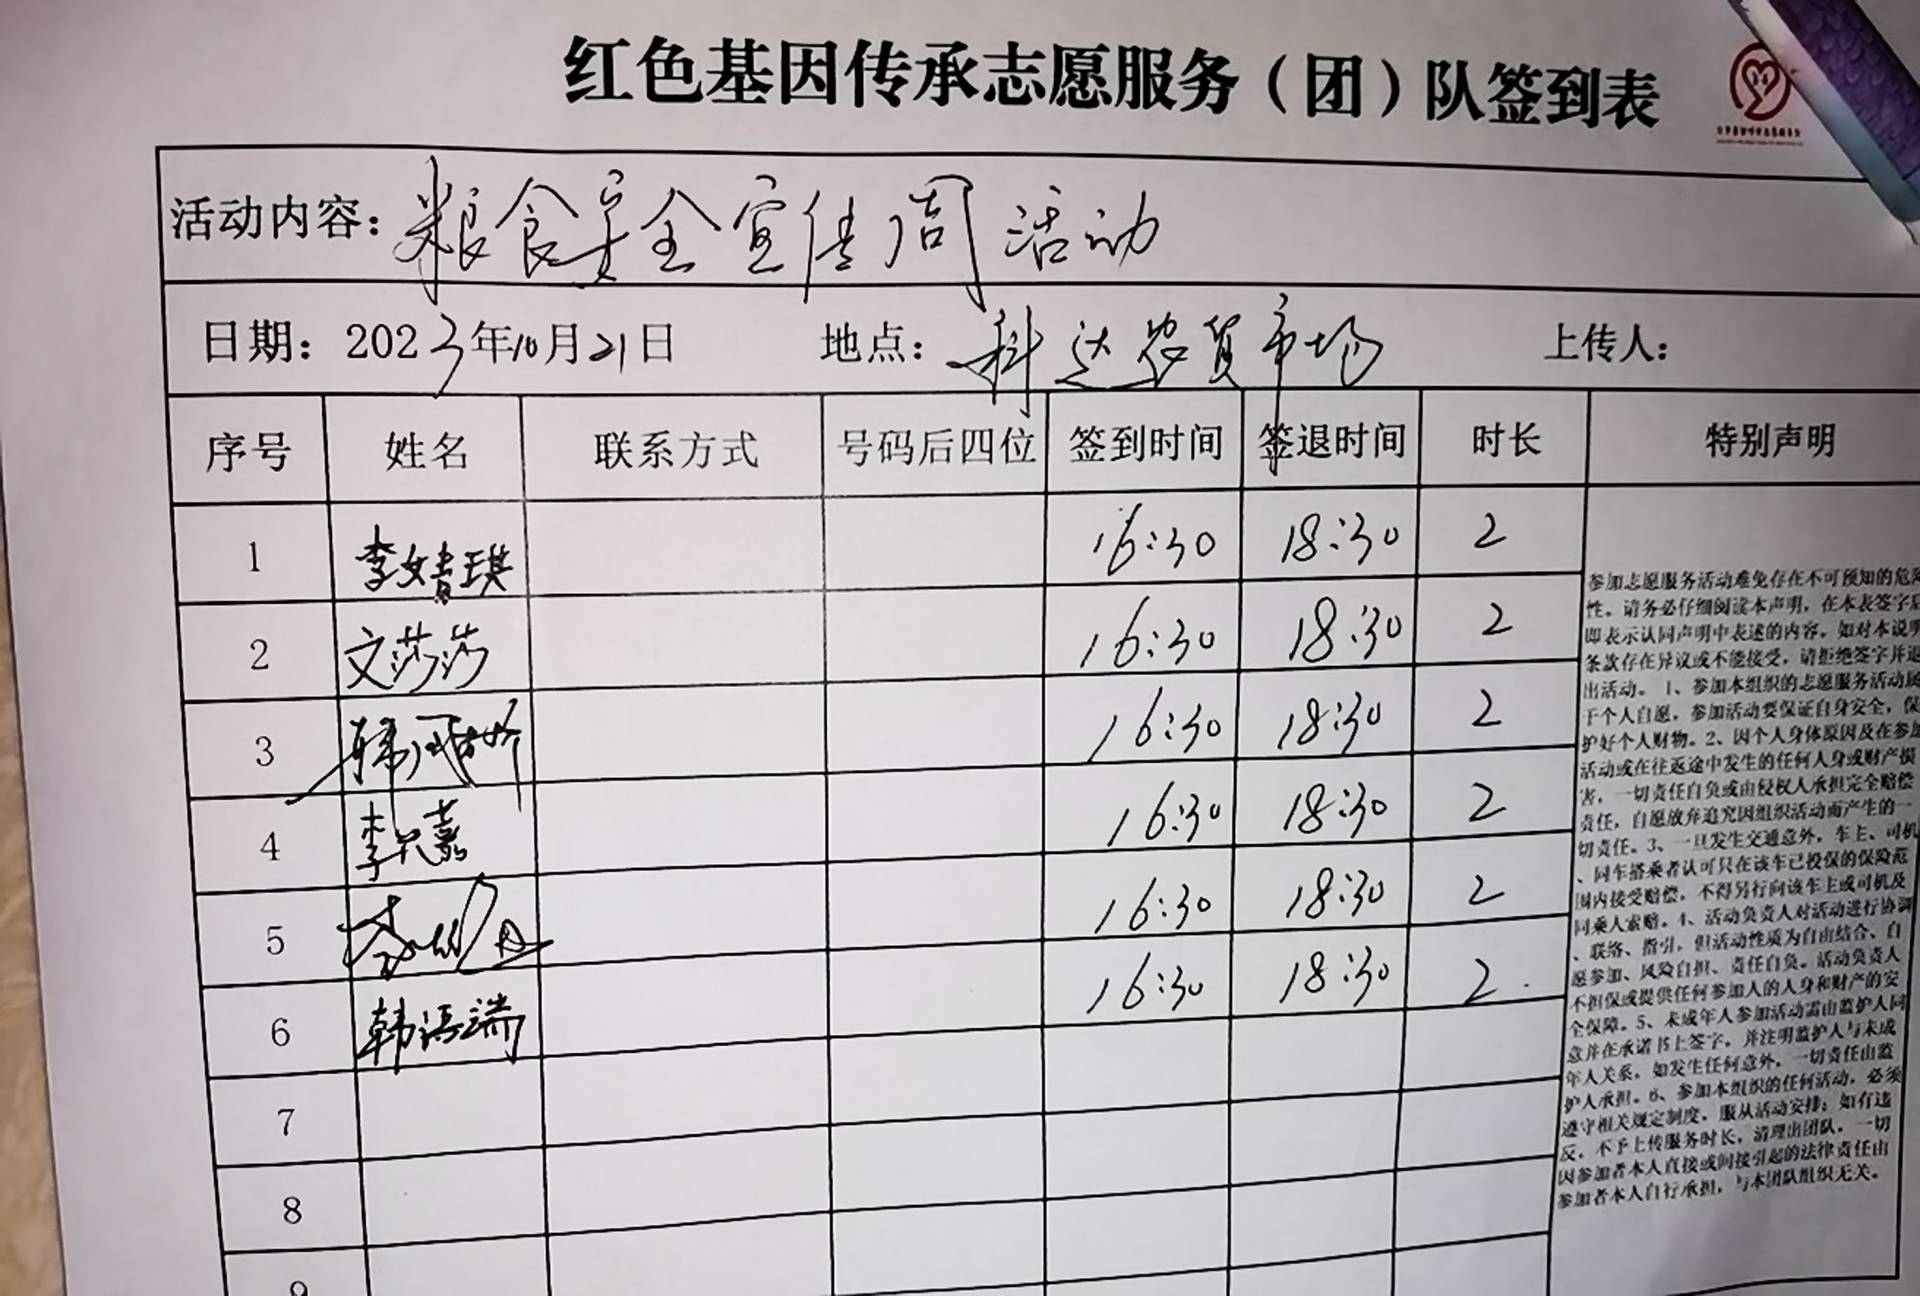 红色基因传承志愿服务（团）队签到表
活动内容：粮食安全宣传周活动
日期：2023年10月21日 地点：科达农贸市场 上传人：
序号 姓名 联系方式 号码后四位 签到时间 签退时间 时长 特别声明
1 李婧琪 16:30 18:30 2
2 文莎莎 16:30 18:30 2
3 16:30 18:30 2
4 16:30 18:30 2
5 16:30 18:30 2
6 16:30 18:30 2
7
8
9
参加志愿服务活动难免存在不可预知的危险
性。请务必仔细阅读本声明，在本表签字后
即表示认同声明中表述的内容。如对本说明
条款存在异议或不能接受，请拒绝签字并退
出活动。1、参加本组织的志愿服务活动属
于个人自愿，参加活动要保证自身安全，保
护好个人财物。2、因个人身体原因及在参加
活动或在往返途中发生的任何人身或财产损
害，一切责任自负或由侵权人承担完全赔偿
责任，自愿放弃追究因组织活动而产生的一
切责任。3、一旦发生交通意外，车主、司机
、同车搭乘者认可只在该车已投保的保险范
围内接受赔偿，不得另行向该车主或司机及
同乘人索赔。4、活动负责人对活动进行协调
、联络、指引，但活动性质为自由结合、自
愿参加、风险自担、责任自负。活动负责人
不担保或提供任何参加人的人身和财产的安
全保障。5、未成年人参加活动需由监护人同
意并在承诺书上签字，并注明监护人与未成
年人关系，如发生任何意外，一切责任由监
护人承担。6、参加本组织的任何活动，必须
遵守相关规定制度，服从活动安排；如有违
反，不予上传服务时长，清理出团队。一切
因参加者本人直接或间接引起的法律责任由
参加者本人自行承担，与本团队组织无关。